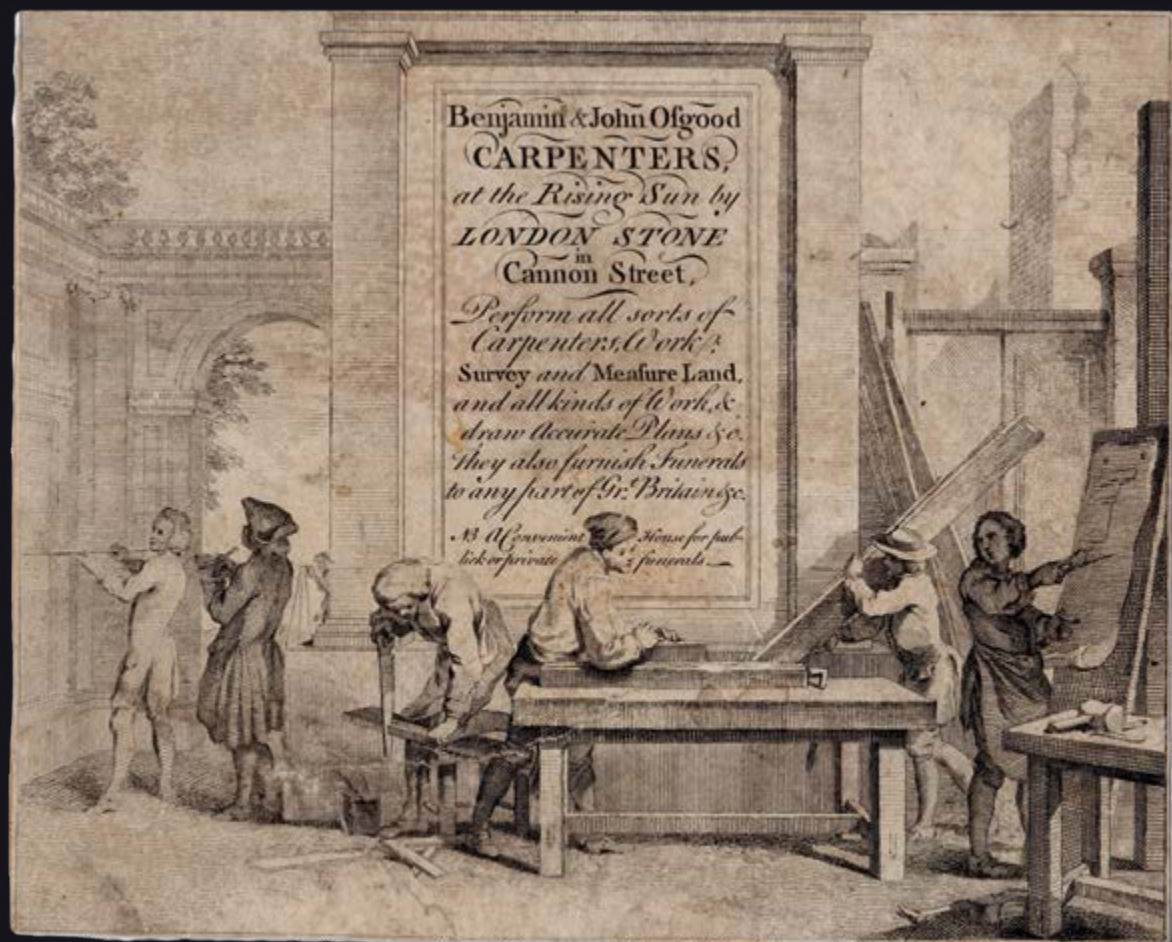 Benjamin & John Oſgood
CARPENTERS,
at the Rising Sun by
LONDON STONE
in
Cannon Street,
Perform all sorts of
Carpenters, Work, &c.
Survey and Meaſure Land,
and all kinds of Work, &
draw Accurate Plans &c.
They also furnish Funerals
to any part of Gr.t Britain &c.
NB A Convenient House for pub-
lick or private funerals